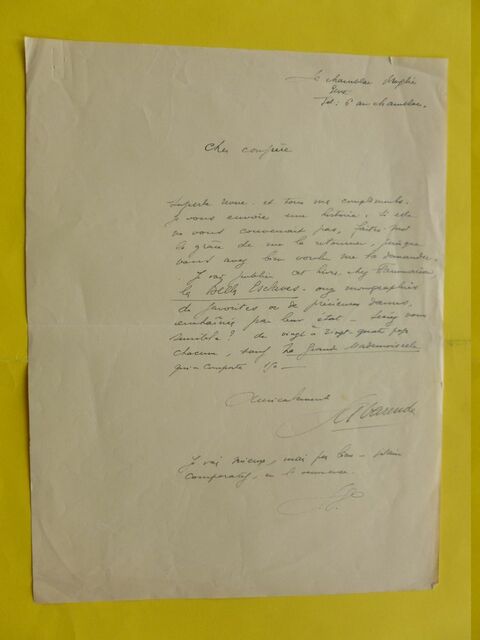 Le Chamblac Broglie
Eure
Tel: 6 au Chamblac.
Cher confrère
Superbe revue. et tous mes compliments.
Je vous envoie une histoire. Si elle
ne vous convenait pas, faites-moi
la grâce de me la retourner, puisque
vous avez bien voulu me la demander.
Je vais publier cet hiver, chez Flammarion,
les Belles Esclaves - onze monographies
de favorites ou de précieuses dames,
enchaînées par leur état -
semble? de vingt à vingt-quatre pages
chacune, sauf La Grande Mademoiselle
qui en comporte
Amicalement
La Varende
Je vais mieux, mais pas bien -
comparatif, en